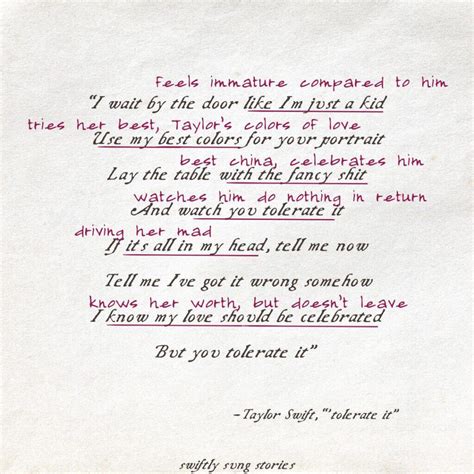 Feels immature compared to him
"I wait by the door like I'm just a kid
tries her best, Taylor's colors of love
Use my best colors for your portrait
best china, celebrates him
Lay the table with the fancy shit
watches him do nothing in return
And watch you tolerate it
driving her mad
If it's all in my head, tell me now
Tell me I've got it wrong somehow
knows her worth, but doesn't leave
I know my love should be celebrated
But you tolerate it"
-Taylor Swift,"'tolerate it"
swiftly sung stories